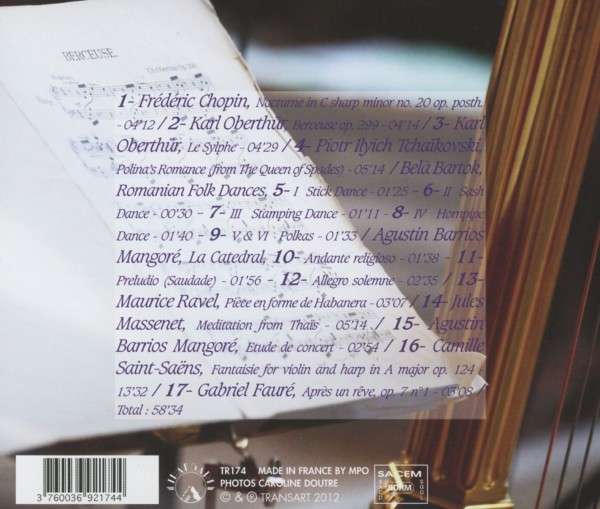 BERCEUSE
1- Frédéric Chopin, Nocturne in C sharp minor no. 20 op. posth.
- 04'12 / 2- Karl Oberthür, Berceuse op. 299 - 04'14 / 3- Karl
Oberthür, Le Sylphe - 04'29 / 4- Piotr Ilyich Tchaïkovski,
Polina's Romance (from The Queen of Spades) - 05'14 / Béla Bartók,
Romanian Folk Dances, 5- I Stick Dance - 01'25 - 6- II Sash
Dance - 00'30 - 7- III Stamping Dance - 01'11 - 8- IV Hornpipe
Dance - 01'40 - 9- V, & VI Polkas - 01'33 / Agustin Barrios
Mangoré, La Catedral, 10- Andante religioso - 01'38 - 11-
Preludio (Saudade) - 01'56 - 12- Allegro solemne - 02'35 / 13-
Maurice Ravel, Pièce en forme de Habanera - 03'07 / 14- Jules
Massenet, Meditation from Thaïs - 05'14 / 15- Agustin
Barrios Mangoré, Etude de concert - 02'54 / 16- Camille
Saint-Saëns, Fantaisie for violin and harp in A major op. 124 -
13'32 / 17- Gabriel Fauré, Après un rêve, op. 7 n°1 - 03'08 /
Total : 58'34
3 760036 921744
TR174 MADE IN FRANCE BY MPO
PHOTOS CAROLINE DOUTRE
© & ℗ TRANSART 2012
SACEM
SDRM